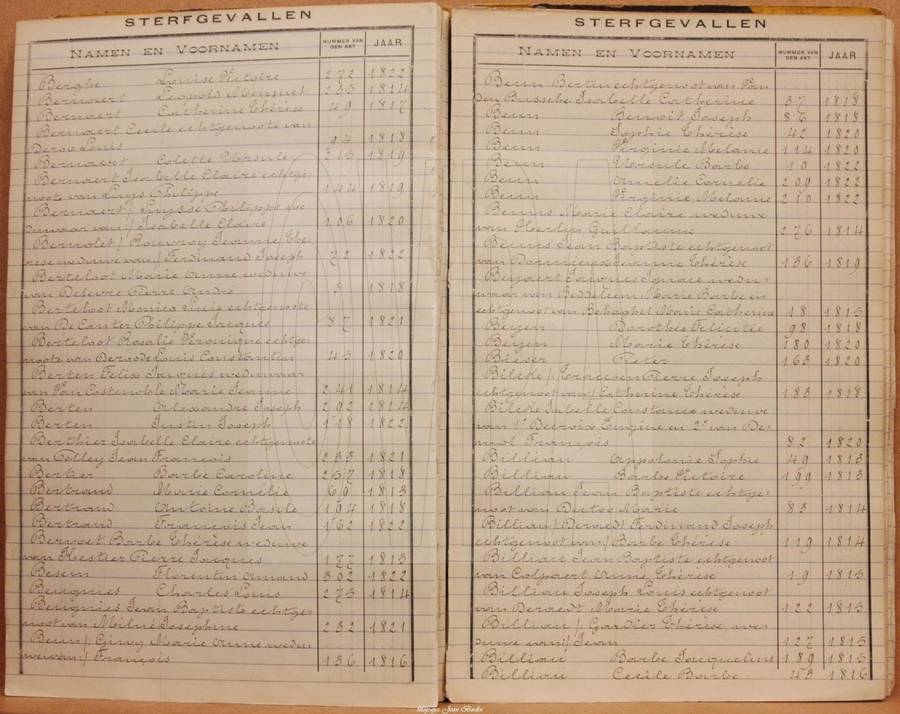 STERFGEVALLEN
NAMEN EN VOORNAMEN NUMMER VAN DEN AKT JAAR
Berghe Louise Victoire 272 1822
Bernaert Leopold Mennet 233 1814
Bernaert Catherine Thérèse 49 1817
Bernaert Cecile echtgenoote van
Deroo Louis 94 1818
Bernaert Colette Ursule 313 1819
Bernaert Isabelle Claire echtge-
noote van Luys Philippe 144 1819
Bernaert / Luysse Philippe we-
duwaar van / Isabelle Claire 106 1820
Bernolet / Rouvroy Jeanne Thé-
rese weduwe van / Ferdinand Joseph 72 1822
Berteloot Marie Anne weduwe
van Defevre Pierre Andre 3 1818
Berteloot Monica Lucie echtgenoote
van De Canter Philippe Jacques 87 1821
Berteloot Rosalie Véronique echtge-
noote van Deroo Louis Constantin 45 1820
Berten Felix Jacques weduwaar
van Van Costenoble Marie Jeanne 241 1814
Berten Alexandre Joseph 292 1814
Berten Justin Joseph 118 1822
Berthier Isabelle Claire echtgenoote
van Colley Jean François 233 1821
Bertier Barbe Caroline 257 1818
Bertrand Marie Cornelie 69 1813
Bertrand Antoine Basile 104 1818
Bertrand François Jean 162 1822
Bervoet Barbe Thérèse weduwe
van Hestier Pierre Jacques 177 1813
Besem Florentin Amand 302 1822
Beugnies Charles Louis 275 1814
Beugnies Jean Baptiste echtge-
noot van Milne Josephine 232 1821
Beun / Giny Marie Anne wedu-
we van / François 136 1816
STERFGEVALLEN
NAMEN EN VOORNAMEN NUMMER VAN DEN AKT JAAR
Beun Bertin echtgenoot van Van
Den Bussche Isabelle Catherine 37 1818
Beun Benoit Joseph 86 1818
Beun Sophie Thérèse 42 1820
Beun Virginie Melanie 114 1820
Beun Ursule Barbe 10 1822
Beun Amelie Cornelie 209 1822
Beun Virginie Melanie 210 1822
Beuns Marie Claire weduwe
van Guillaume 276 1814
Beuns Jean Baptiste echtgenoot
van Dornieux Jeanne Thérèse 136 1819
Beyaert Jacques Ignace wedu-
waar van Beddeleem Marie Barbe en
echtgenoot van Behaghel Marie Catherine 18 1815
Beyen Dorothee Felicitée 98 1818
Beyen Marie Thérèse 180 1820
Bieser Pieter 163 1820
Bilcke / Pierre Joseph
echtgenoot van / Catherine Thérèse 183 1818
Bilcke Isabelle Constance weduwe
van 1° Decroix Eugène en 2° van De-
mol François 82 1820
Billiau Appolonie Sophie 49 1813
Billiau Barbe Victoire 199 1813
Billiau Jean Baptiste echtge-
noot van Dutoo Marie 83 1814
Billiau / Deraedt Ferdinand Joseph
echtgenoot van / Barbe Thérèse 119 1814
Billiau Jean Baptiste echtgenoot
van Colpaert Anne Thérèse 19 1815
Billiau Joseph Louis echtgenoot
van Deraedt Marie Thérèse 122 1815
Billiau / Gardier Thérèse we-
duwe van / Jean 127 1815
Billiau Barbe Jacqueline 189 1815
Billiau Cecile Barbe 43 1816